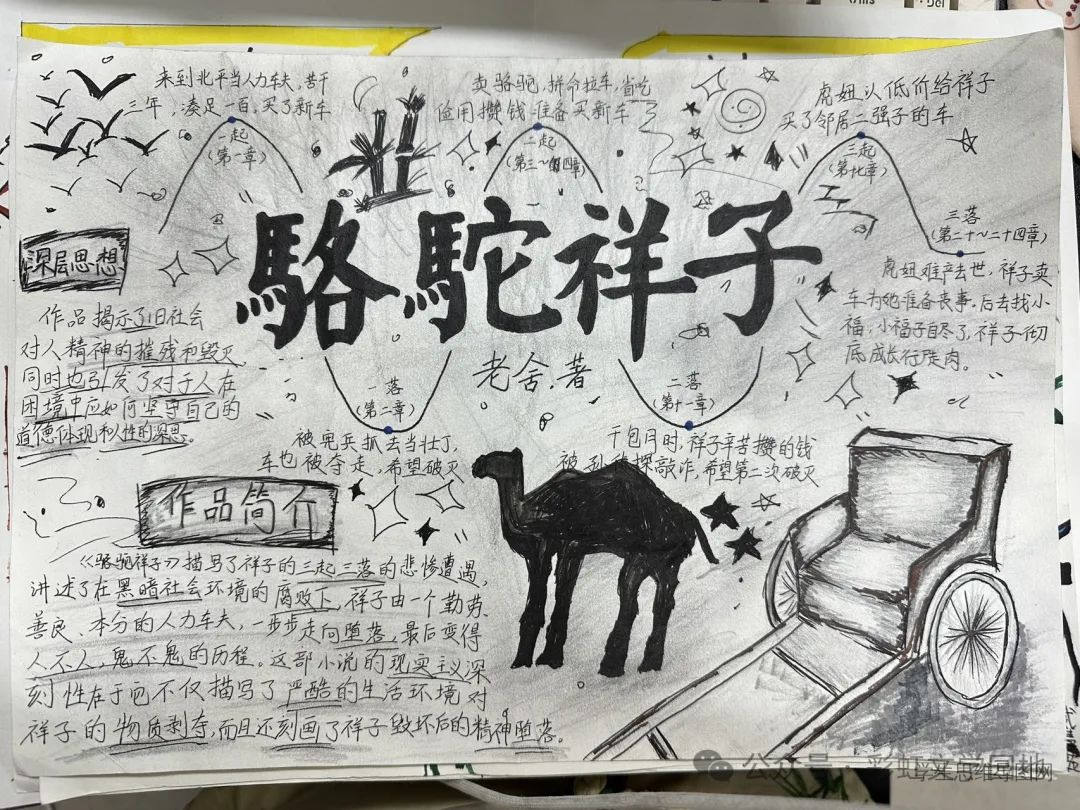 来到北平当人力车夫，苦干
三年，凑足一百，买了新车
一起
(第一章)
卖骆驼，拼命拉车，省吃
俭用攒钱准备买新车
二起
虎妞以低价给祥子
买了邻居二强子的车
三起
(第十九章)
三落
(第二十~二十四章)
虎妞难产去世，祥子卖
车为她准备丧事。后去找小
福，小福子自尽了，祥子彻
底成长行尸走肉。
駱駝祥子
老舍.著
深层思想
作品揭示了旧社会
对人精神的摧残和毁灭
同时也引发了对于人在
困境中应如何坚守自己的
道德体现和人性的深思。
一落
(第二章)
被宪兵抓去当壮丁,
车也被夺走，希望破灭
二落
(第十一章)
干包月时，祥子辛苦攒的钱
被孙侦探敲诈，希望第二次破灭
作品简介
《骆驼祥子》描写了祥子的三起三落的悲惨遭遇，
讲述了在黑暗社会环境的腐败下，祥子由一个勤劳、
善良、本分的人力车夫，一步步走向堕落，最后变得
人不人，鬼不鬼的历程。这部小说的现实主义深
刻性在于它不仅描写了严酷的生活环境对
祥子的物质剥夺，而且还刻画了祥子毁坏后的精神堕落。
公众号·彩虹